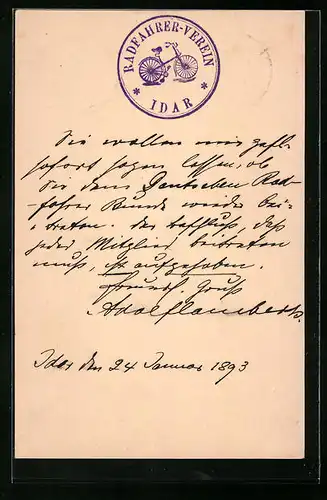 RADFAHRER-VEREIN
* IDAR *
Sie wollen mir gefl.
sofort sagen lassen, ob
Sie dem Deutschen Rad-
fahrer Bunde wieder bei-
treten. der Beschluß, daß
jedes Mitglied beitreten
muß, ist aufgehoben.
Gruß
Adolf
Idar den 24 Januar 1893